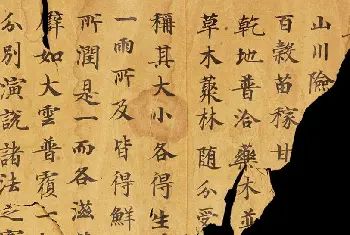 山川險
百穀苗稼甘
乾地普洽藥木並
草木藂林随分受
稱其大小各得生
一雨所及皆得鮮
所潤是一而各滋
譬如大雲普覆一
分別演說諸法之